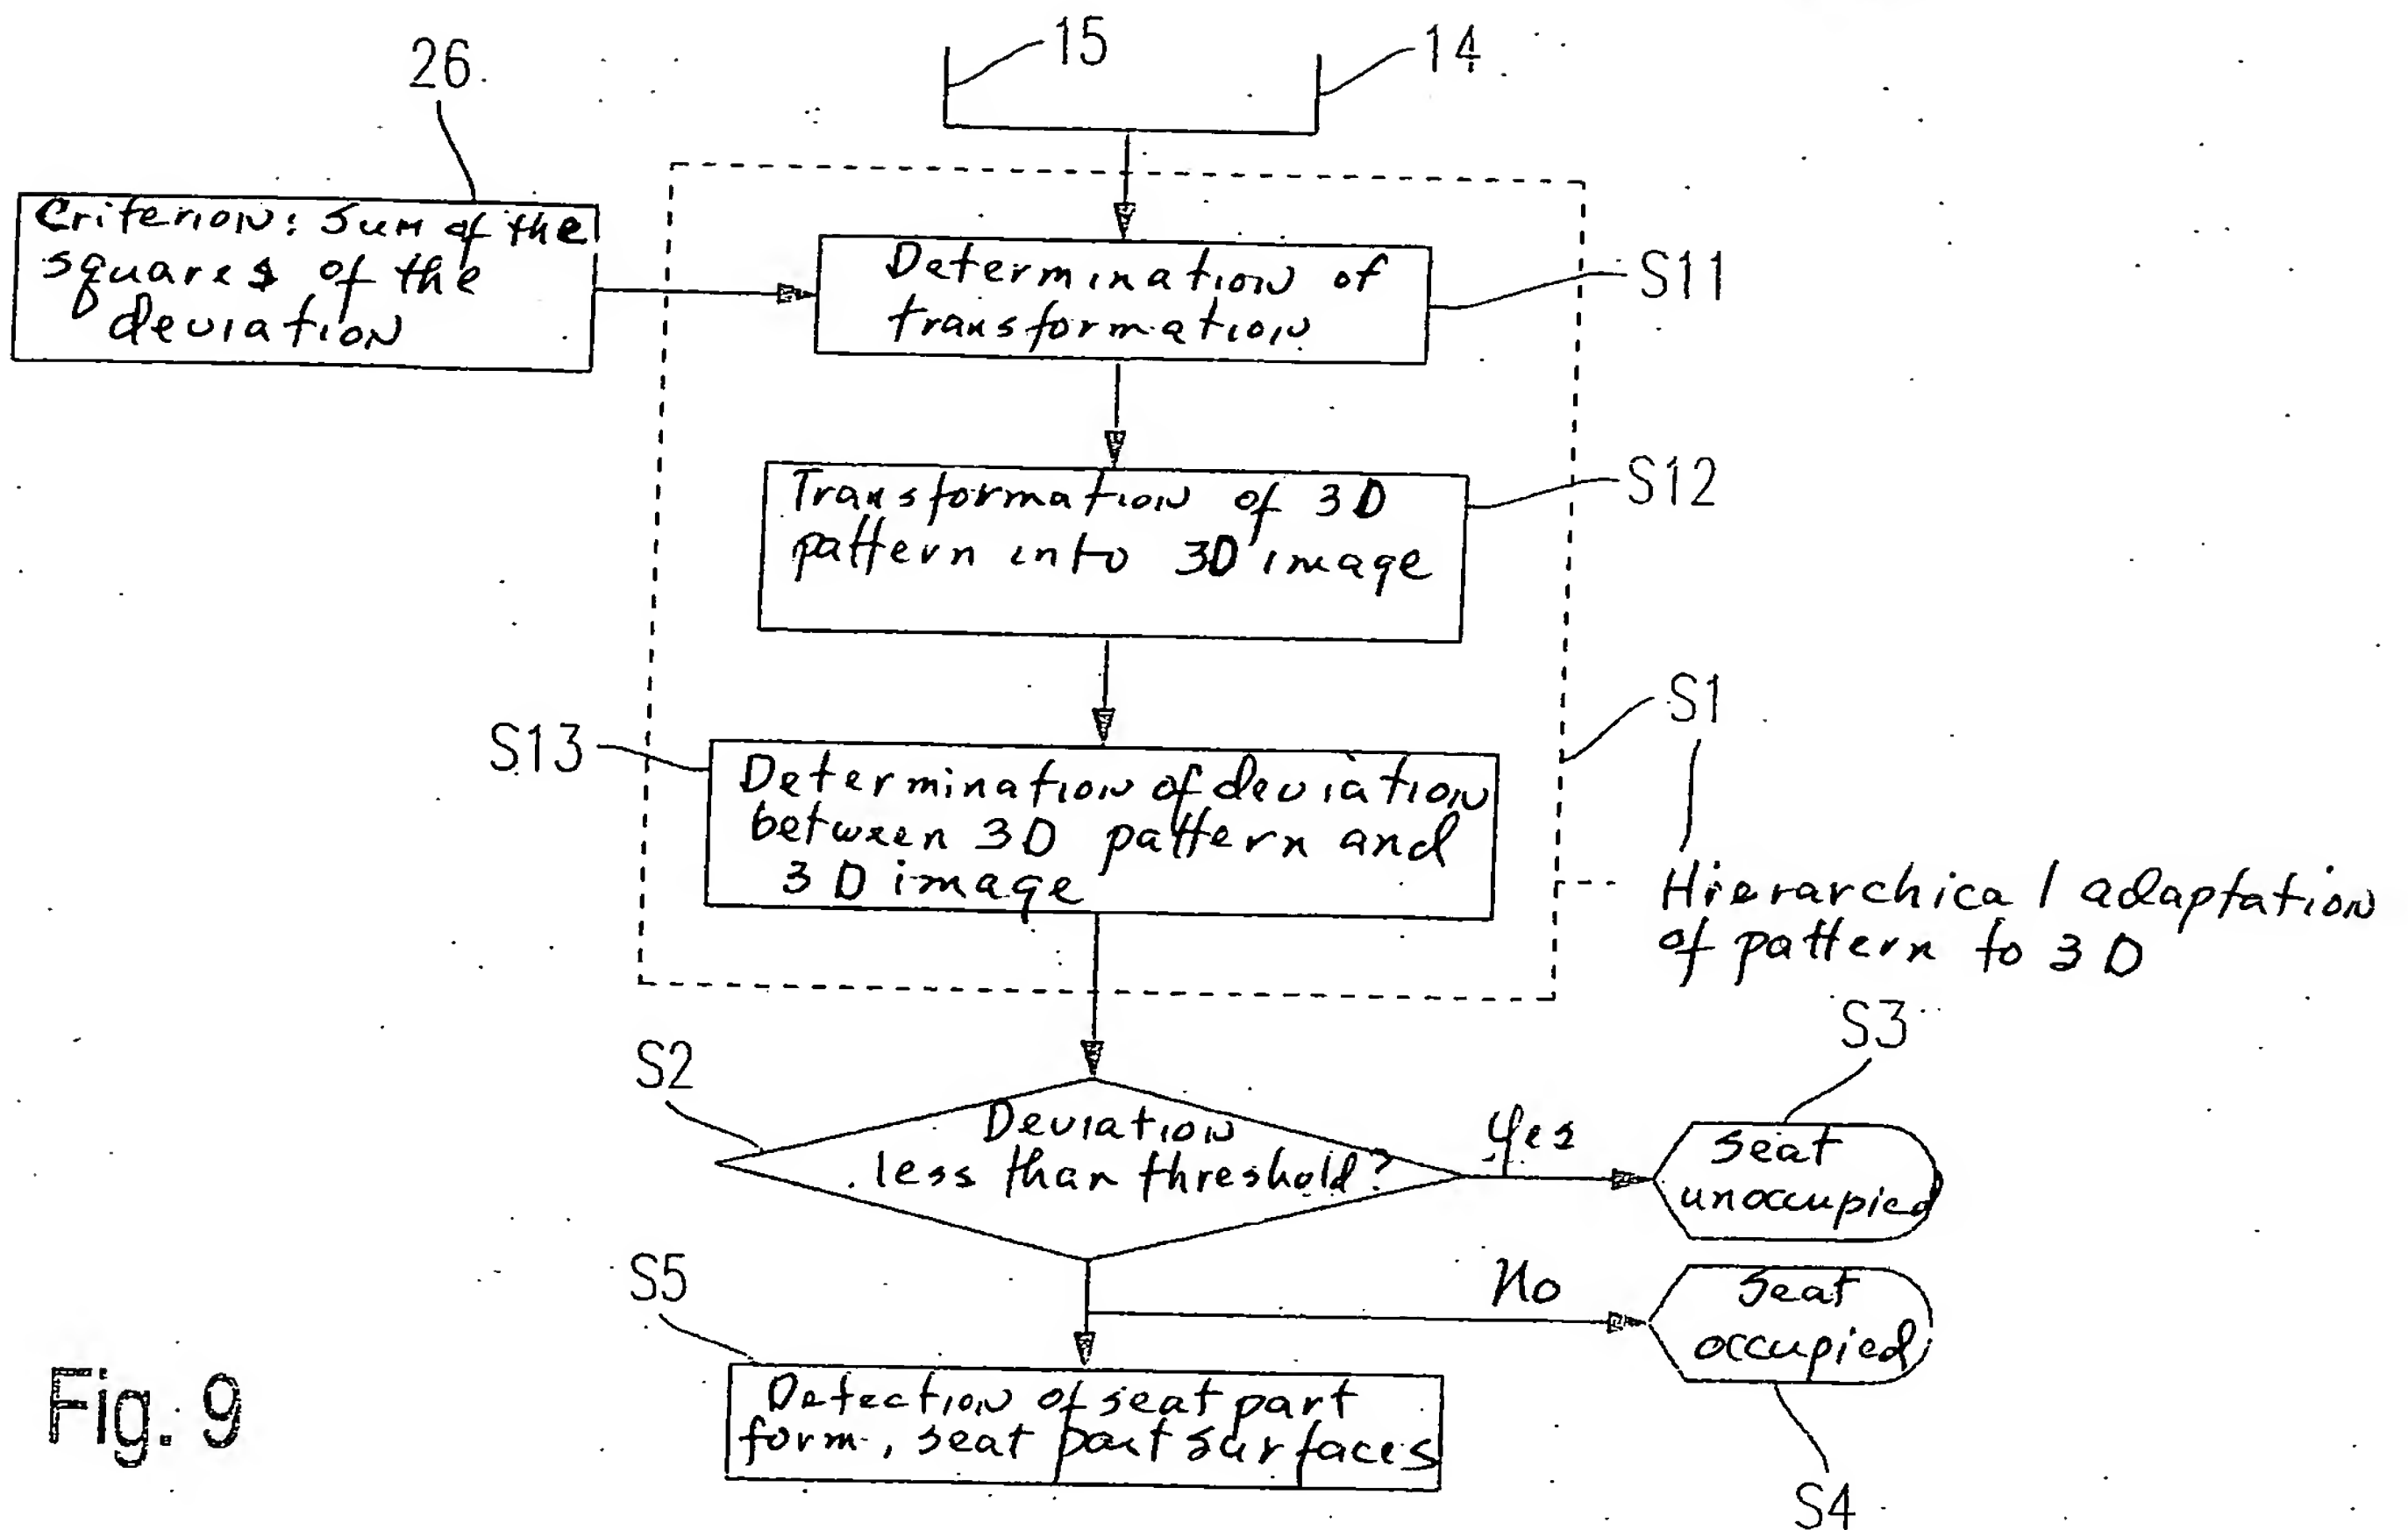 15
14
26
Criterion: Sum of the
squares of the
deviation
Determination of
transformation
S11
Transformation of 3D
pattern into 3D image
S12
S1
S13
Determination of deviation
between 3D pattern and
3D image
Hierarchical adaptation
of pattern to 3D
S3
S2
Deviation
less than threshold?
Yes
seat
unoccupied
S5
No
Seat
occupied
Detection of seat part
form, seat part surfaces
Fig. 9
S4